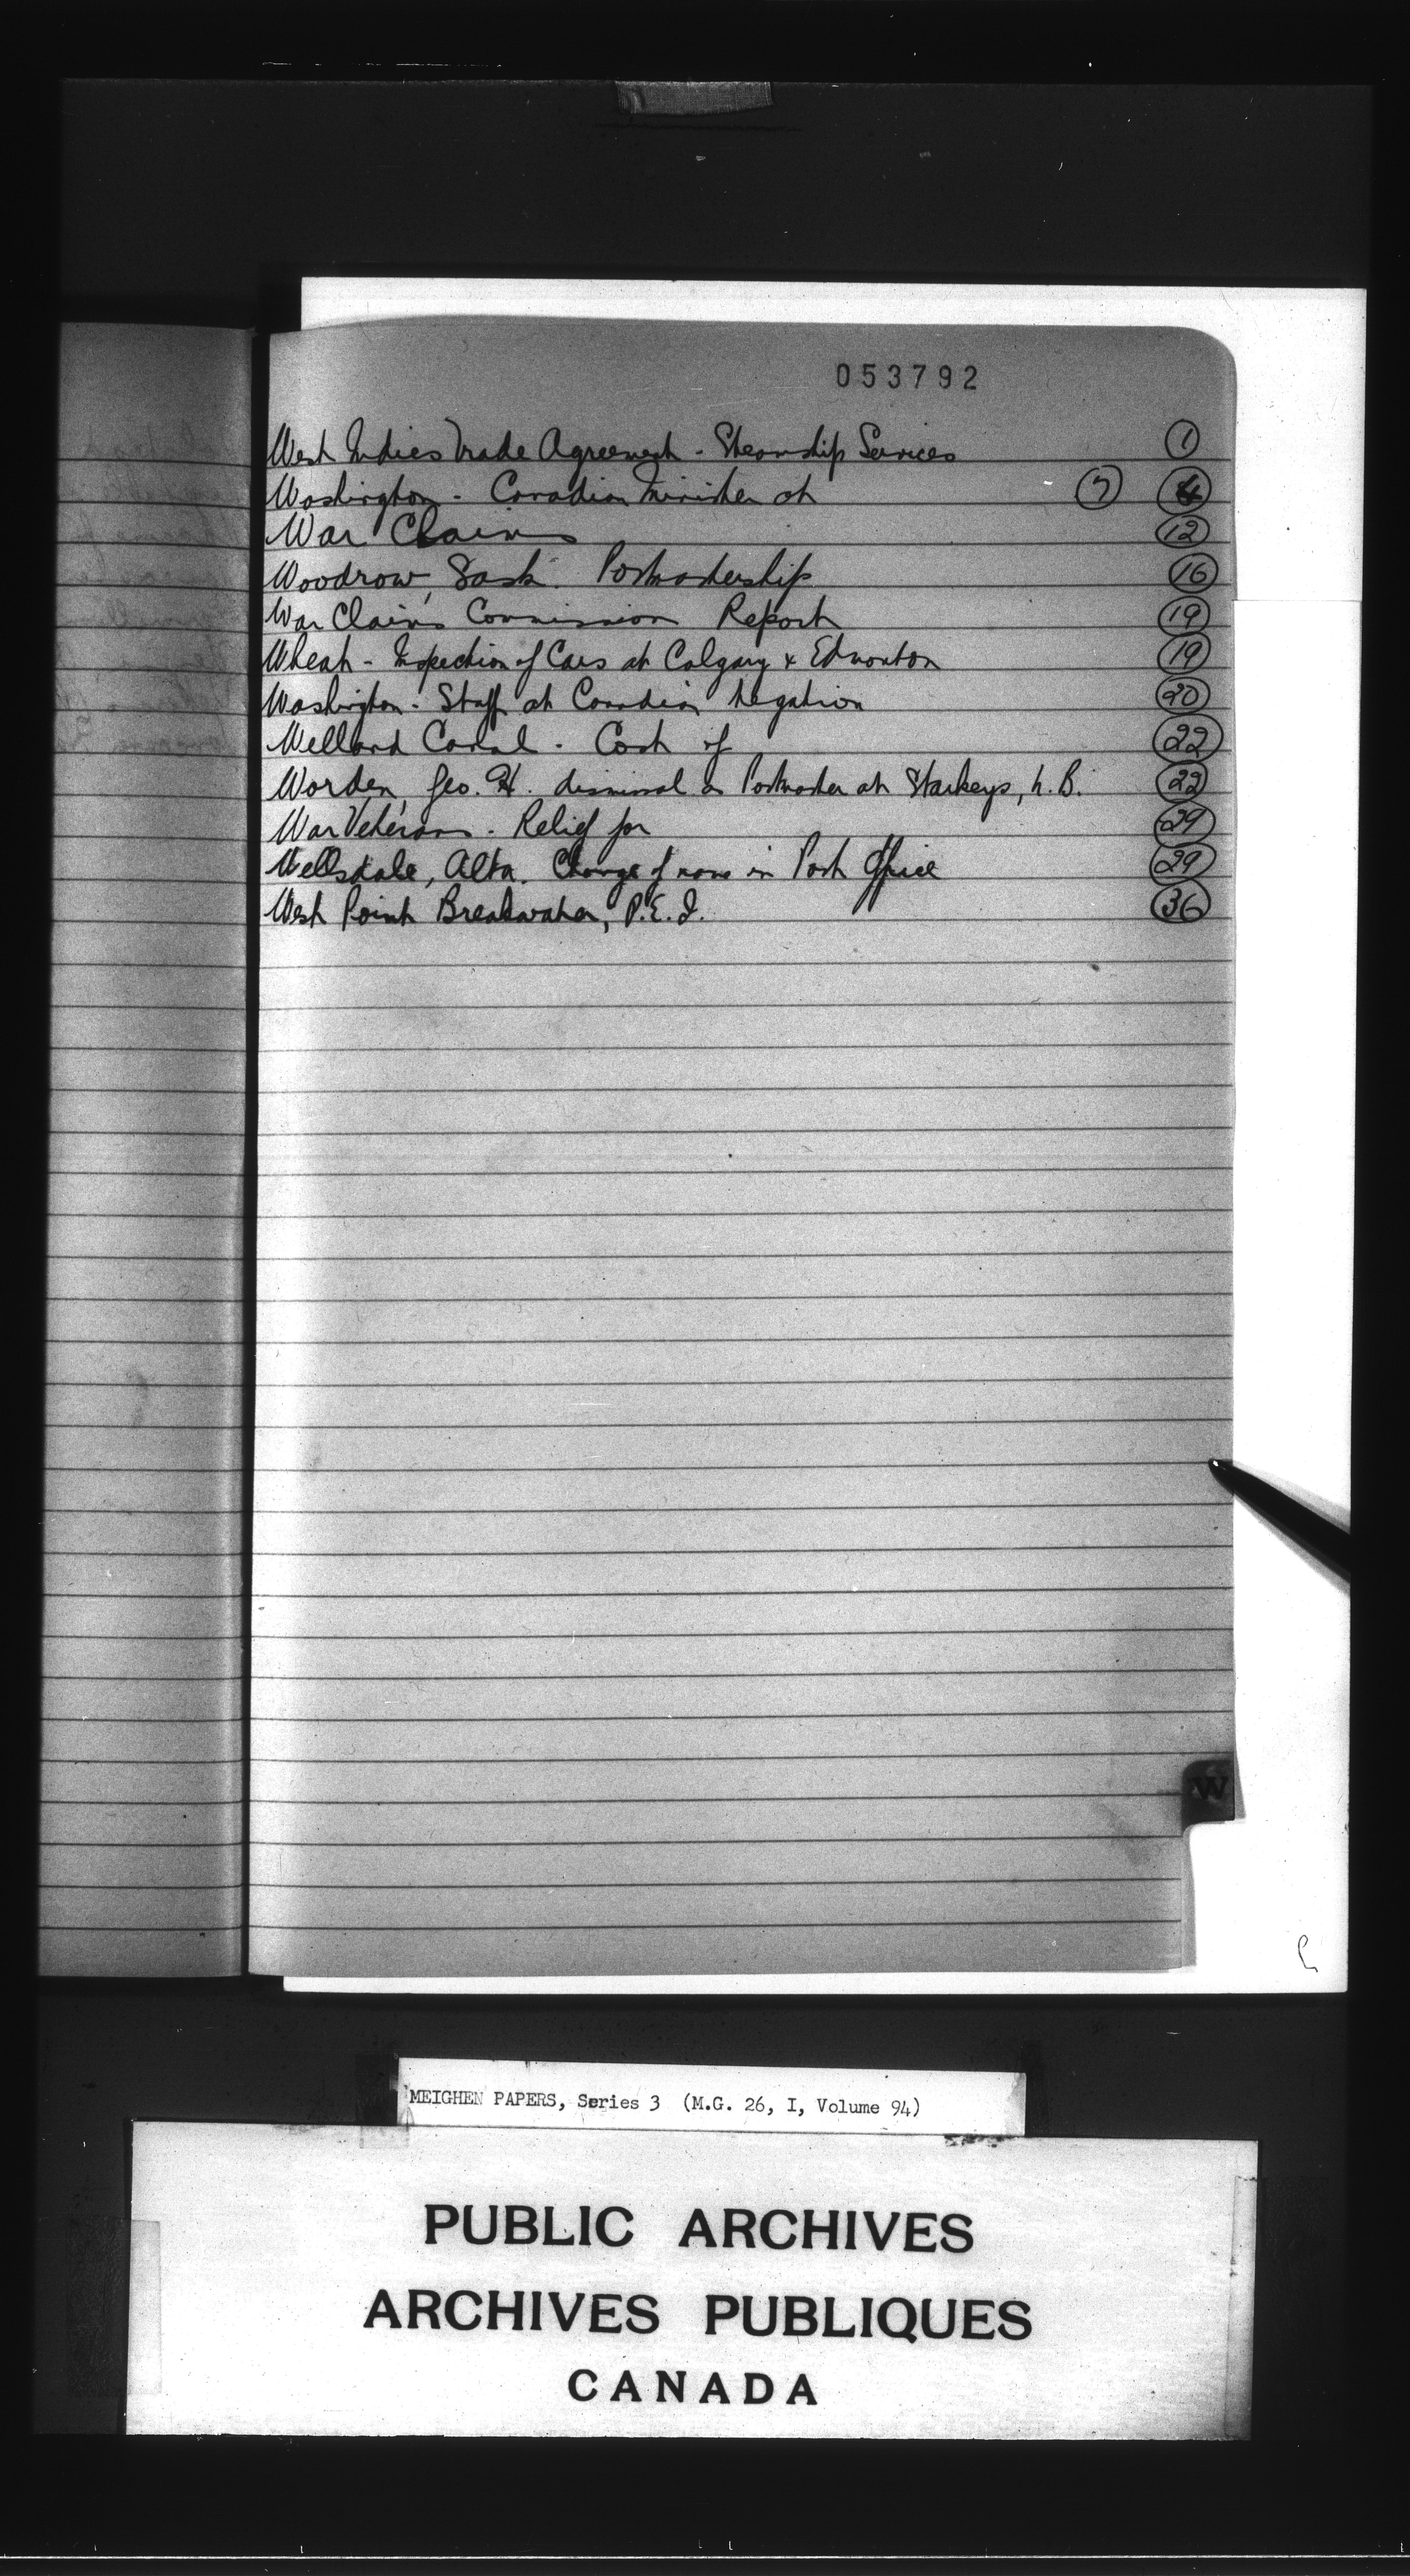 053792
West Indies Trade Agreement - Steamship Services 1
Washington - Canadian Minister at 7 4
War Claims 12
Woodrow, Sask. Postmastership 16
War Claims Commission Report 19
Wheat - Inspection of Cars at Calgary & Edmonton 19
Washington - Staff at Canadian Legation 20
Welland Canal - Cost of 22
Worden, Geo. H. dismissal as Postmaster at Starkeys, N.B. 22
War Veterans - Relief for 29
Wellsdale, Alta. Change of name in Post Office 29
West Point Breakwater, P.E.I. 36
W
MEIGHEN PAPERS, Series 3 (M.G. 26, I, Volume 94)
PUBLIC ARCHIVES
ARCHIVES PUBLIQUES
CANADA